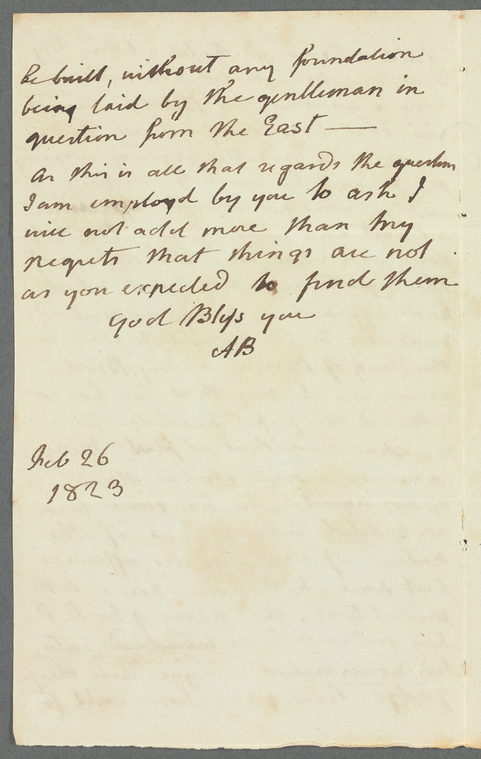 be built, without any foundation
being laid by the gentleman in
question from the East —
As this is all that regards the question
I am employd by you to ask I
will not add more than my
regrets that things are not
as you expected to find them
God Bless you
AB
Feb 26
1823